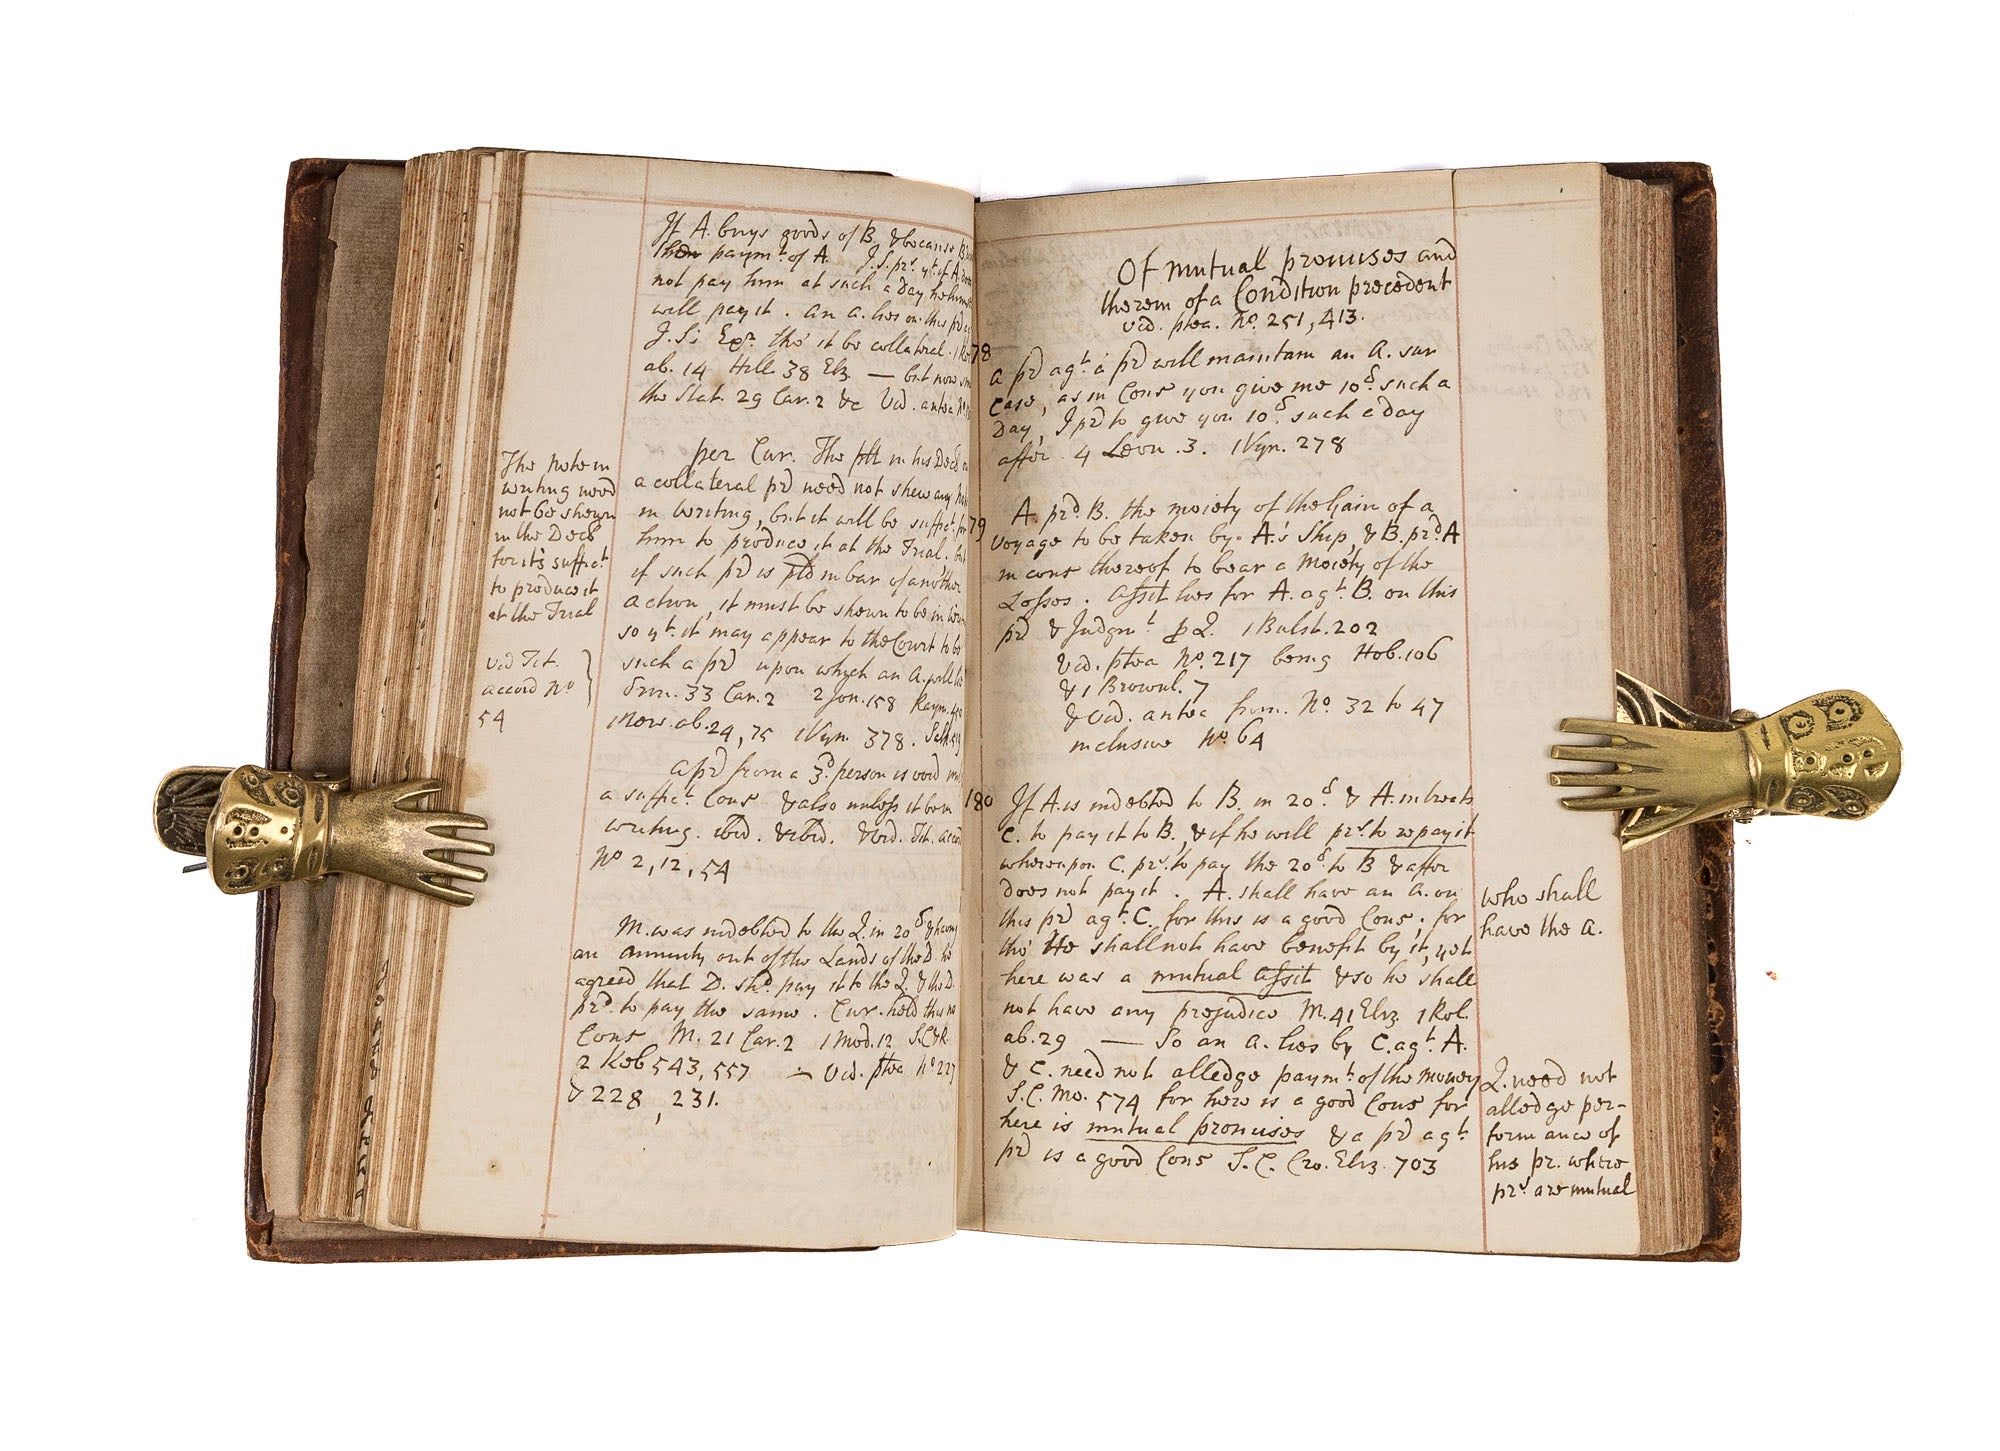 If A. buys goods of B. & because B
paymt. of A. J.S. prs. yt. if A. does
not pay him at such a Day he himself
will pay it. an a. lies on this prd
J.S's Exr. tho' it be collateral. 1 Ro
ab. 14 Hill 38 Eliz — but now
the Stat. 29 Car. 2 &c Vid. antea No
per Cur. The plt in his Decl on
a collateral prd need not shew any
in writing, but it will be suffict. for
him to produce it at the Trial. but
if such prd is pld in bar of another
action, it must be shewn to be in
so yt. it may appear to the Court to be
such a prd upon which an a. will lie
33 Car. 2 2 Jon. 158 Raym. 450
1 Mow. ab. 24, 75 1 Vyn. 378. Salk. 519
a prd from a 3d. person is void
a suffict. Cons & also unless it be in
writing. ibid. & ibid. & Vid. Tit. accord
No 2, 12, 54
M. was indebted to the Q. in 20s & having
an annuity out of the Lands of the D. he
agreed that D. shd. pay it to the Q. & the D.
prd. to pay the same. Cur. held this no
Cons M. 21 Car. 2 1 Mod. 12 S.C. & R.
2 Keb 543, 557 — Vid. ptea No 227
& 228, 231.
The Note in
writing need
not be shewn
in the Decl
for it's suffict
to produce it
at the Trial
Vid Tit.
accord No
54
Of mutual promises and
therein of a Condition precedent
vid. ptea. No. 251, 413.
78
a prd agt. a prd will maintain an a. sur
Case, as in Cons you give me 10s. such a
Day, I prd to give you 10s such a Day
after 4 Leon. 3. 1 Vyn. 278
79
A. prd. B. the moiety of the Gain of a
voyage to be taken by A's Ship, & B. prd. A
in cons thereof to bear a Moiety of the
Losses. assit lies for A. agt. B. on this
prd & Judgmt. p Q. 1 Bulst. 202
Vid. ptea No. 217 being Hob. 106
& 1 Brownl. 7
& Vid. antea from No. 32 to 47
inclusive No. 64
180
If A. is indebted to B. in 20s. & A. intreats
C. to pay it to B, & if he will prs. to repay it
whereupon C. prs. to pay the 20s. to B & after
does not pay it. A. shall have an a. on
this prd agt. C. for this is a good Cons; for
tho' He shall not have benefit by it, yet
here was a mutual assit & so he shall
not have any prejudice M. 41 Eliz 1 Rol.
ab. 29 — So an a. lies by C. agt. A.
& C. need not alledge paymt. of the money
S.C. Mo. 574 for here is a good Cons for
here is mutual promises & a prd agt.
prd is a good Cons S.C. Cro. Eliz. 703
who shall
have the a.
Q. need not
alledge per-
formance of
his pr. where
prs. are mutual